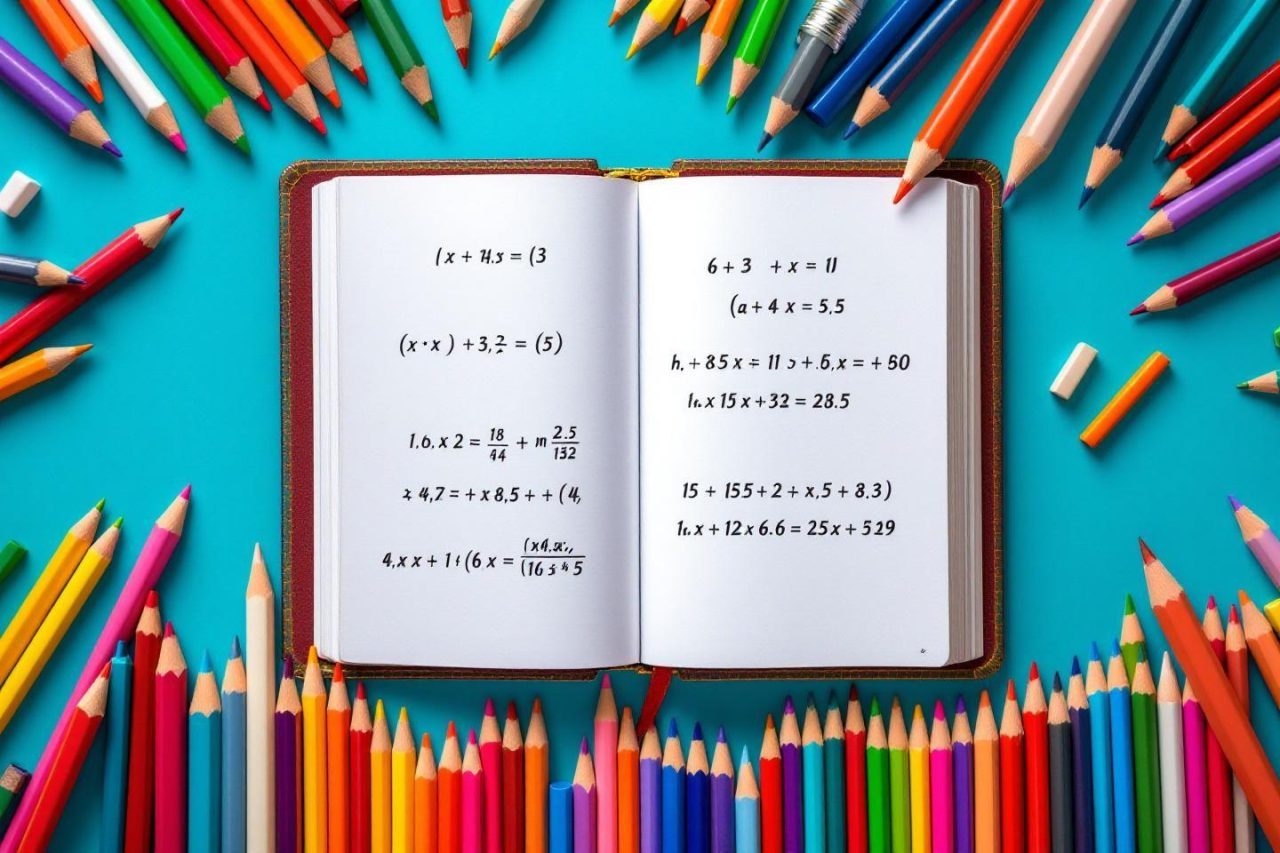 (x + 4.s = (3
(x · x ) + 3, = (5)
1.6. x 2 = 18/44 + m 2.5/132
4,7 = + x 8,5 + + (4,
4,x x + 1 (6 x =
6 + 3 + x = 11
(a + 4 x = 5,5
h. + 85 x = 11 + .6,x = + 80
x 15 x + 32 = 28.5
15 + 155 + 2 + x,5 + 8.3)
x + 12 x 6.6 = 25x + 529